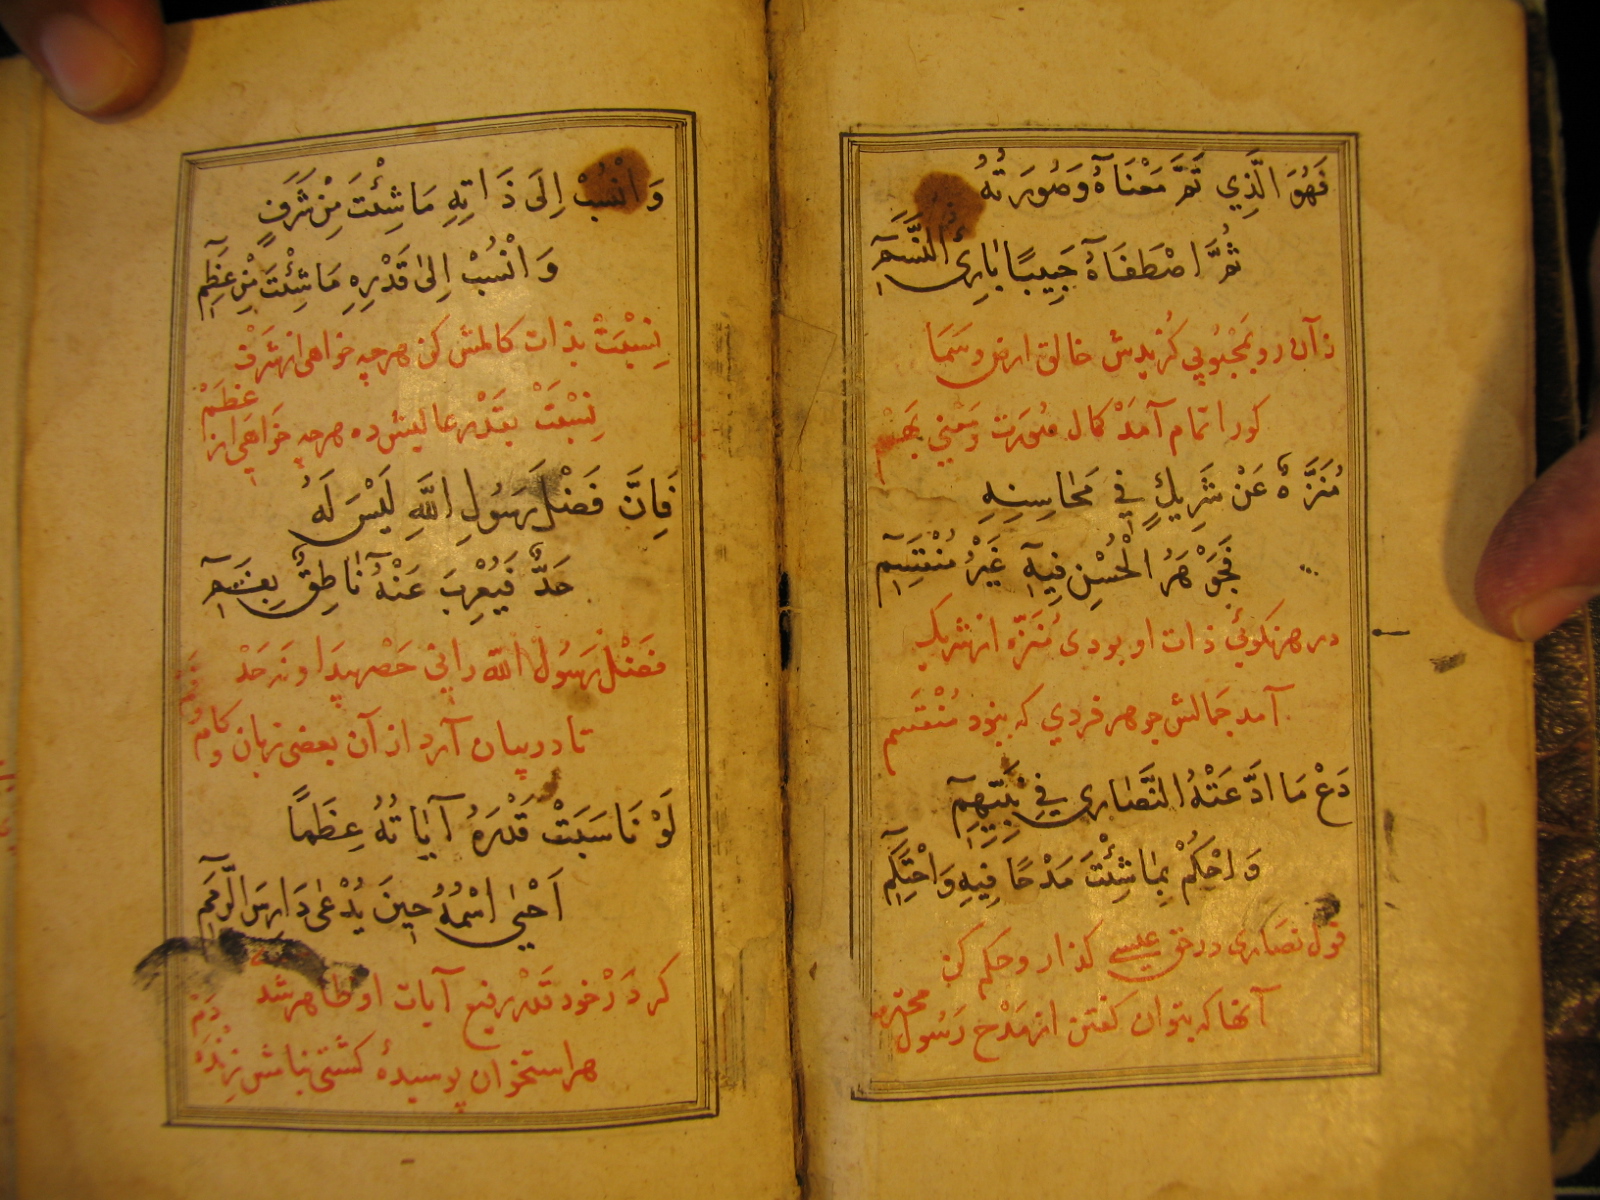 فَهُوَ الَّذِي تَمَّ مَعْنَاهُ وَصُورَتُهُ
ثُمَّ اصْطَفَاهُ حَبِيبًا بَارِئُ النَّسَمِ
زآن رو بمحبوبي گزیدش خالق ارض و سما
کورا تمام آمد کمال صورت و معني بهم
مُنَزَّهٌ عَنْ شَرِيكٍ فِي مَحَاسِنِهِ
فَجَوْهَرُ الْحُسْنِ فِيهِ غَيْرُ مُنْقَسِمِ
در هر نکوئی ذات او بودی مُنَزّه از شریک
آمد جمالش جوهر فردي که نبود مُنْقَسم
دَعْ مَا ادَّعَتْهُ النَّصَارَى فِي نَبِيِّهِمِ
وَاحْكُمْ بِمَا شِئْتَ مَدْحًا فِيهِ وَاحْتَكِمِ
قول نصاری در حق عیسی گذار و حکم کن
آنها که بتوان گفتن از مَدْح رَسُول محترم
وَانْسُبْ إِلَى ذَاتِهِ مَا شِئْتَ مِنْ شَرَفٍ
وَانْسُبْ اِلَى قَدْرِهِ مَا شِئْتَ مِنْ عِظَمِ
نِسْبَتْ بذات کاملش کن هر چه خواهی از شرف
نِسْبَتْ بقَدْر عالیش ده هر چه خواهی از عظم
فَاِنَّ فَضْلَ رَسُولِ اللَّهِ لَيْسَ لَهُ
حَدٌّ فَيُعْرِبَ عَنْهُ نَاطِقٌ بِفَمِ
فضل رَسُول الله را نی حَصْر پیدا و نه حَدْ
تا در بیان آرد از آن بعضی زبان و کام و فم
لَوْ نَاسَبَتْ قَدْرَهُ آيَاتُهُ عِظَمًا
اَحْيَى اسْمُهُ حِينَ يُدْعَى دَارِسَ الرِّمَمِ
گر دَرْ خود قدر رفیع آیات او ظاهر شد
هر استخوان پوسیدهٔ گشتی بنامش زنده دم